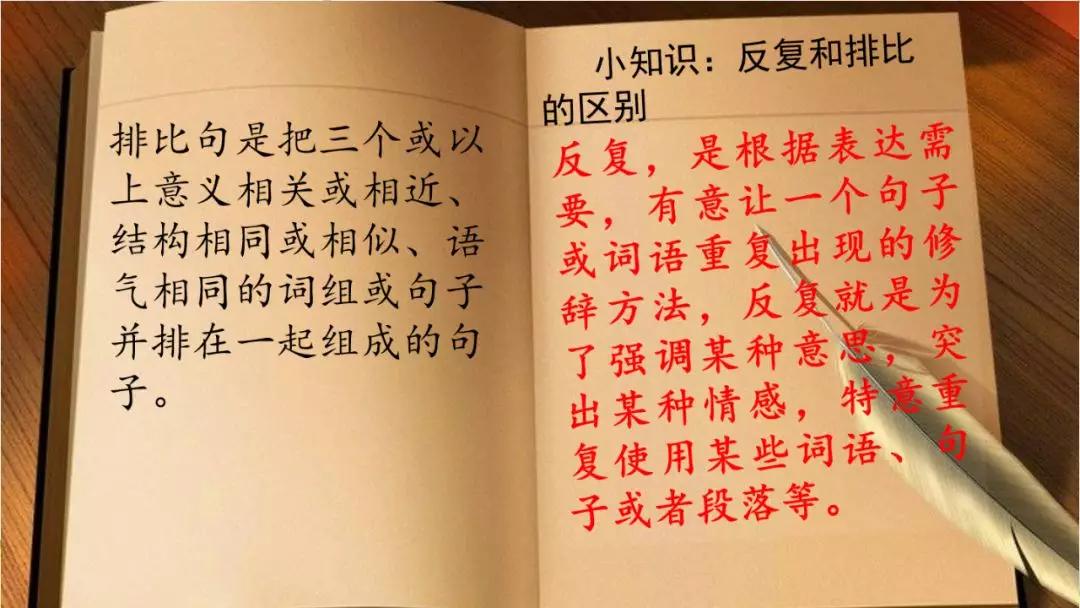 排比句是把三个或以
上意义相关或相近、
结构相同或相似、语
气相同的词组或句子
并排在一起组成的句
子。
小知识：反复和排比
的区别
反复，是根据表达需
要，有意让一个句子
或词语重复出现的修
辞方法，反复就是为
了强调某种意思，突
出某种情感，特意重
复使用某些词语、句
子或者段落等。